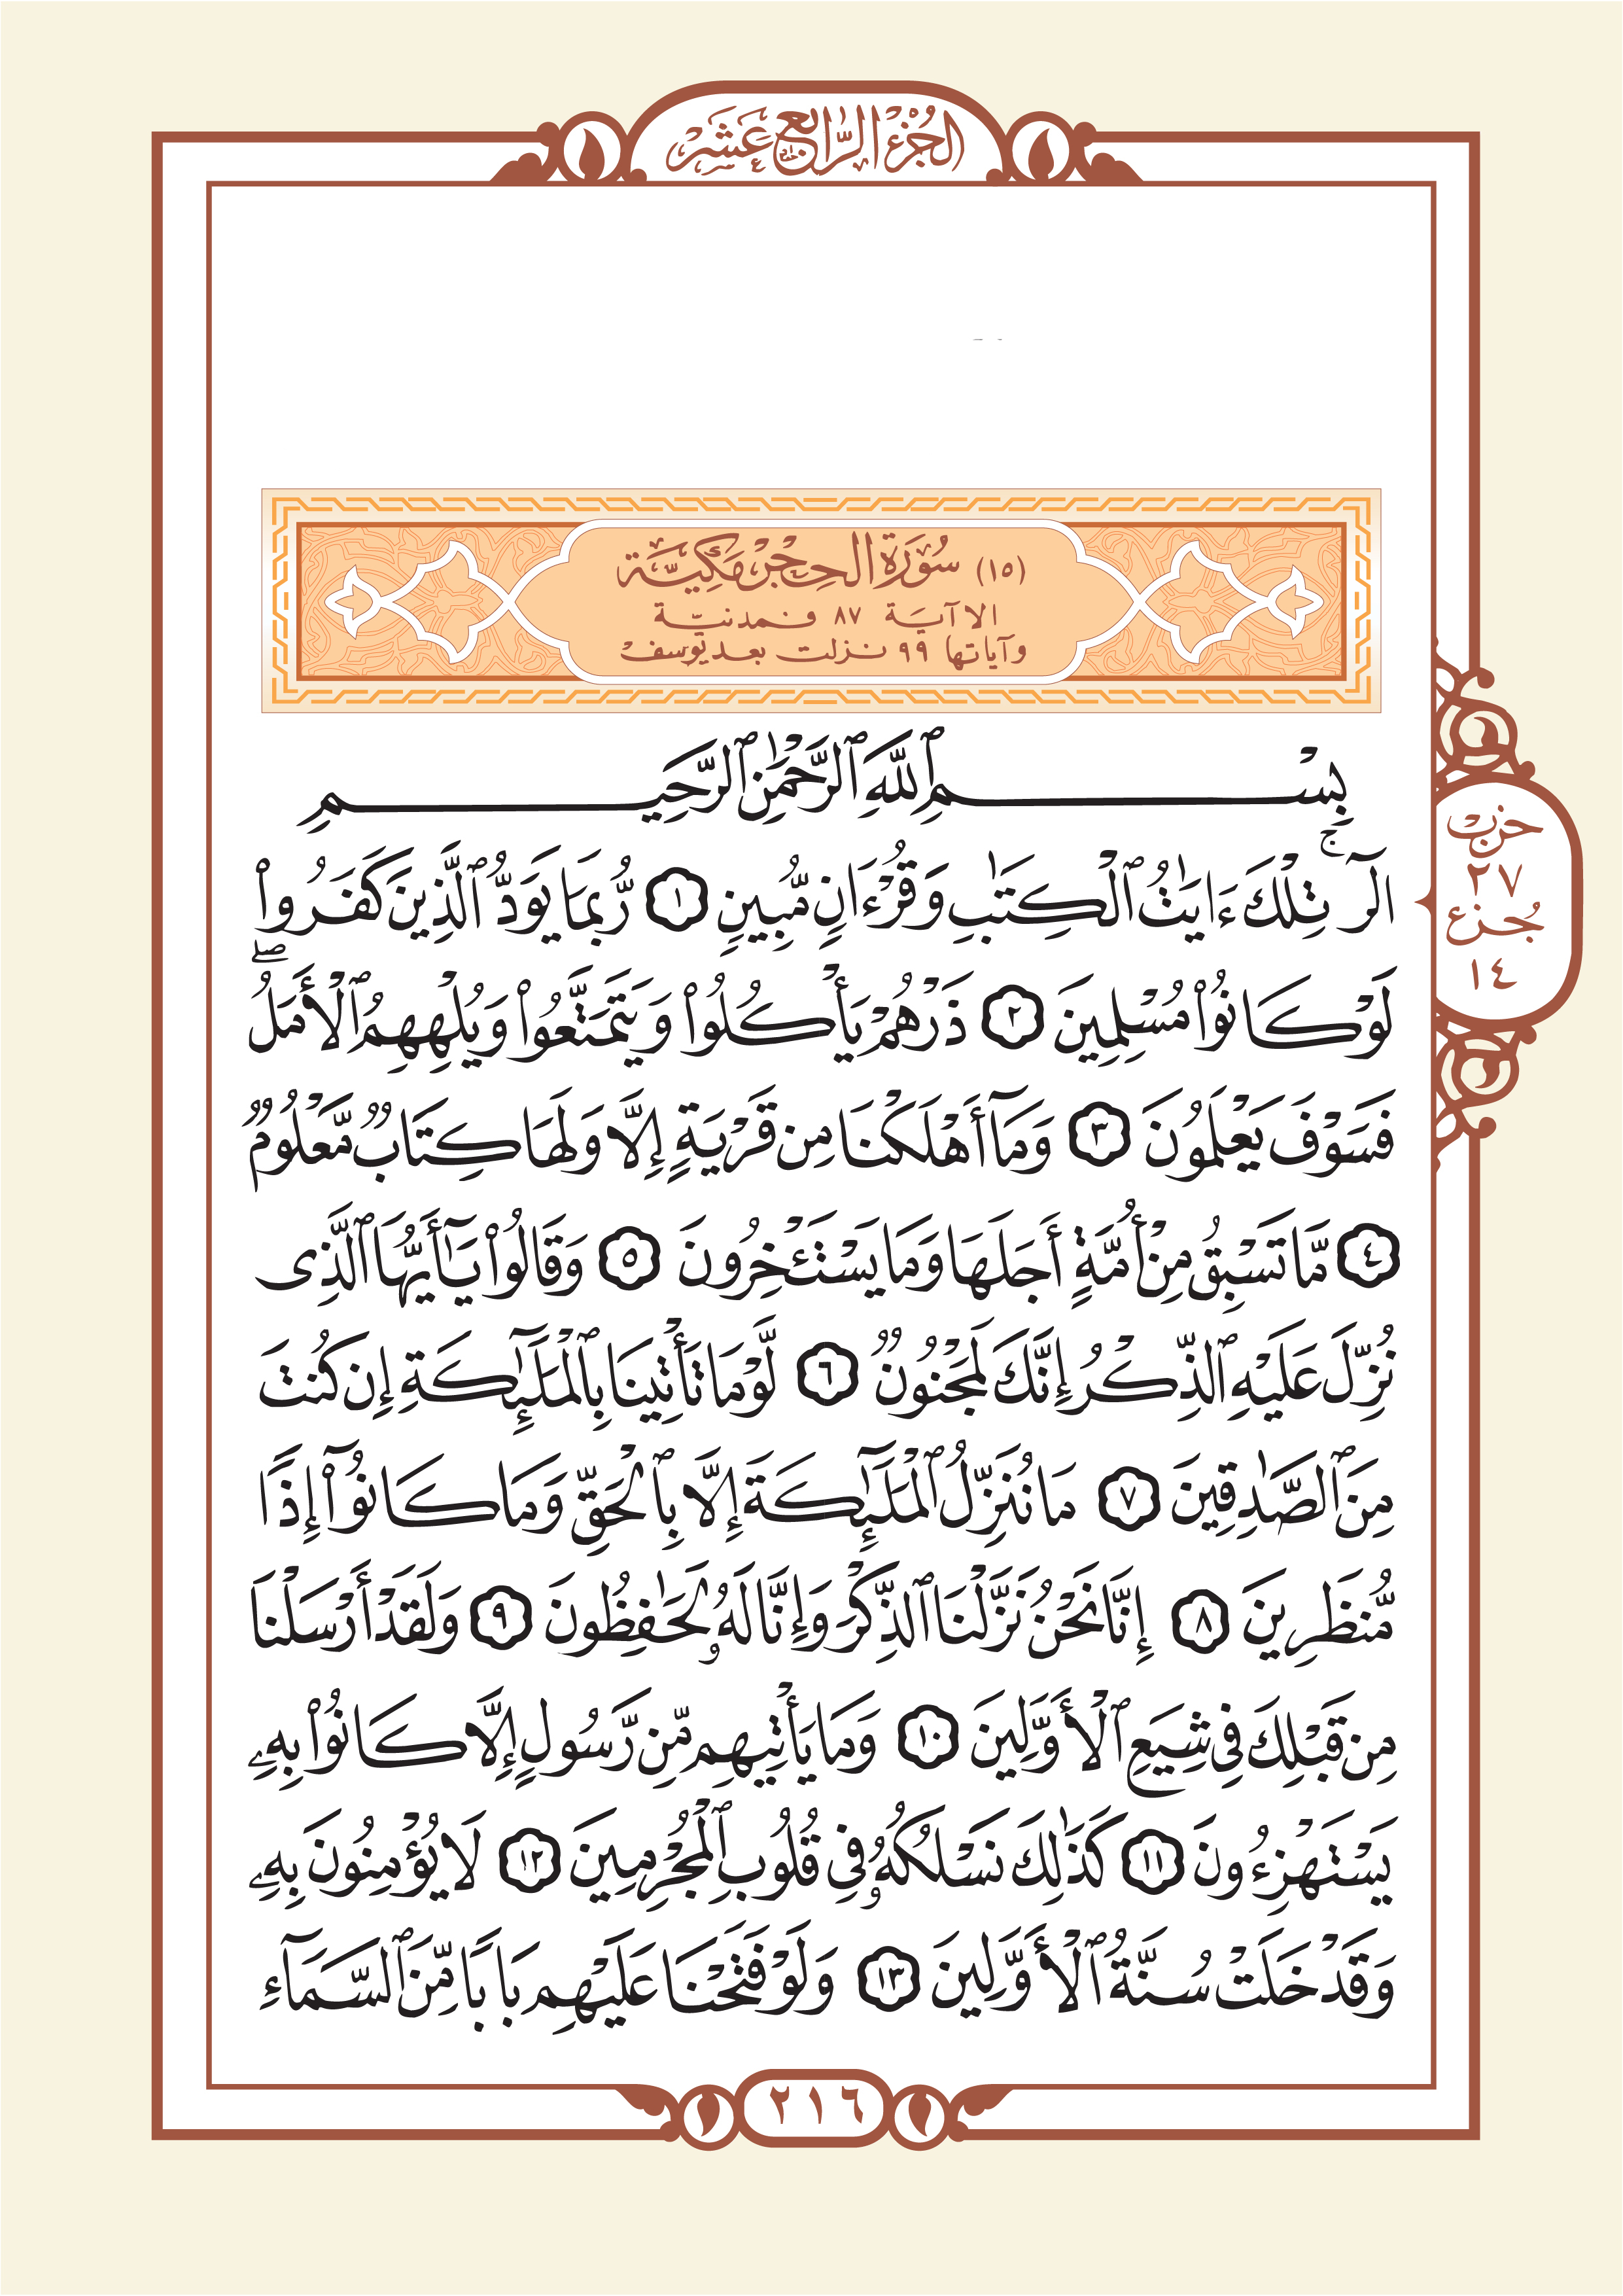 الجُزْءُ الرَّابِعَ عَشَرْ
(١٥) سُوْرَةِ الحِجْرِ مَكِيَّة
الاآيَة ٨٧ فَمدنيّة
وآياتها ٩٩ نزلت بعد يوسف
بِسْمِ ٱللَّهِ ٱلرَّحْمَٰنِ ٱلرَّحِيمِ
الٓرۚ تِلْكَ ءَايَٰتُ ٱلْكِتَٰبِ وَقُرْءَانٍ مُّبِينٍ ١ رُّبَمَا يَوَدُّ ٱلَّذِينَ كَفَرُوا۟
لَوْ كَانُوا۟ مُسْلِمِينَ ٢ ذَرْهُمْ يَأْكُلُوا۟ وَيَتَمَتَّعُوا۟ وَيُلْهِهِمُ ٱلْأَمَلُۖ
فَسَوْفَ يَعْلَمُونَ ٣ وَمَآ أَهْلَكْنَا مِن قَرْيَةٍ إِلَّا وَلَهَا كِتَابٌ مَّعْلُومٌ
٤ مَّا تَسْبِقُ مِنْ أُمَّةٍ أَجَلَهَا وَمَا يَسْتَـْٔخِرُونَ ٥ وَقَالُوا۟ يَٰٓأَيُّهَا ٱلَّذِى
نُزِّلَ عَلَيْهِ ٱلذِّكْرُ إِنَّكَ لَمَجْنُونٌ ٦ لَّوْ مَا تَأْتِينَا بِٱلْمَلَٰٓئِكَةِ إِن كُنتَ
مِنَ ٱلصَّٰدِقِينَ ٧ مَا نُنَزِّلُ ٱلْمَلَٰٓئِكَةَ إِلَّا بِٱلْحَقِّ وَمَا كَانُوٓا۟ إِذًا
مُّنظَرِينَ ٨ إِنَّا نَحْنُ نَزَّلْنَا ٱلذِّكْرَ وَإِنَّا لَهُۥ لَحَٰفِظُونَ ٩ وَلَقَدْ أَرْسَلْنَا
مِن قَبْلِكَ فِى شِيَعِ ٱلْأَوَّلِينَ ١٠ وَمَا يَأْتِيهِم مِّن رَّسُولٍ إِلَّا كَانُوا۟ بِهِۦ
يَسْتَهْزِءُونَ ١١ كَذَٰلِكَ نَسْلُكُهُۥ فِى قُلُوبِ ٱلْمُجْرِمِينَ ١٢ لَا يُؤْمِنُونَ بِهِۦ
وَقَدْ خَلَتْ سُنَّةُ ٱلْأَوَّلِينَ ١٣ وَلَوْ فَتَحْنَا عَلَيْهِم بَابًا مِّنَ ٱلسَّمَآءِ
حزب
٢٧
جُزء
١٤
٢١٦